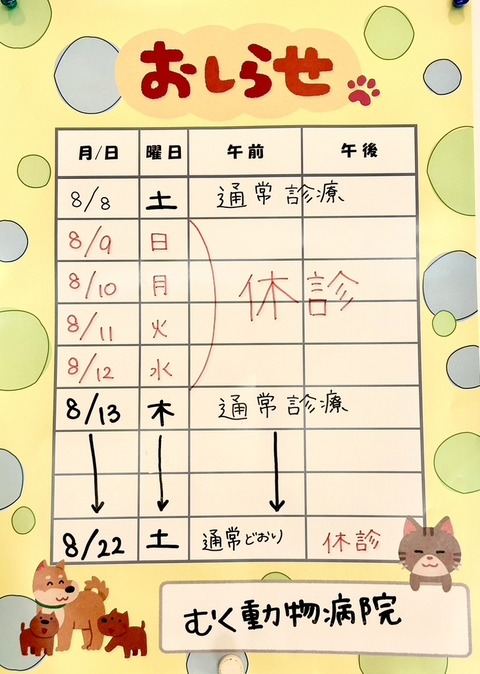 おしらせ
月/日 曜日 午前 午後
8/8 土 通常診療
8/9 日
8/10 月 休診
8/11 火
8/12 水
8/13 木 通常診療
8/22 土 通常どおり 休診
むく動物病院